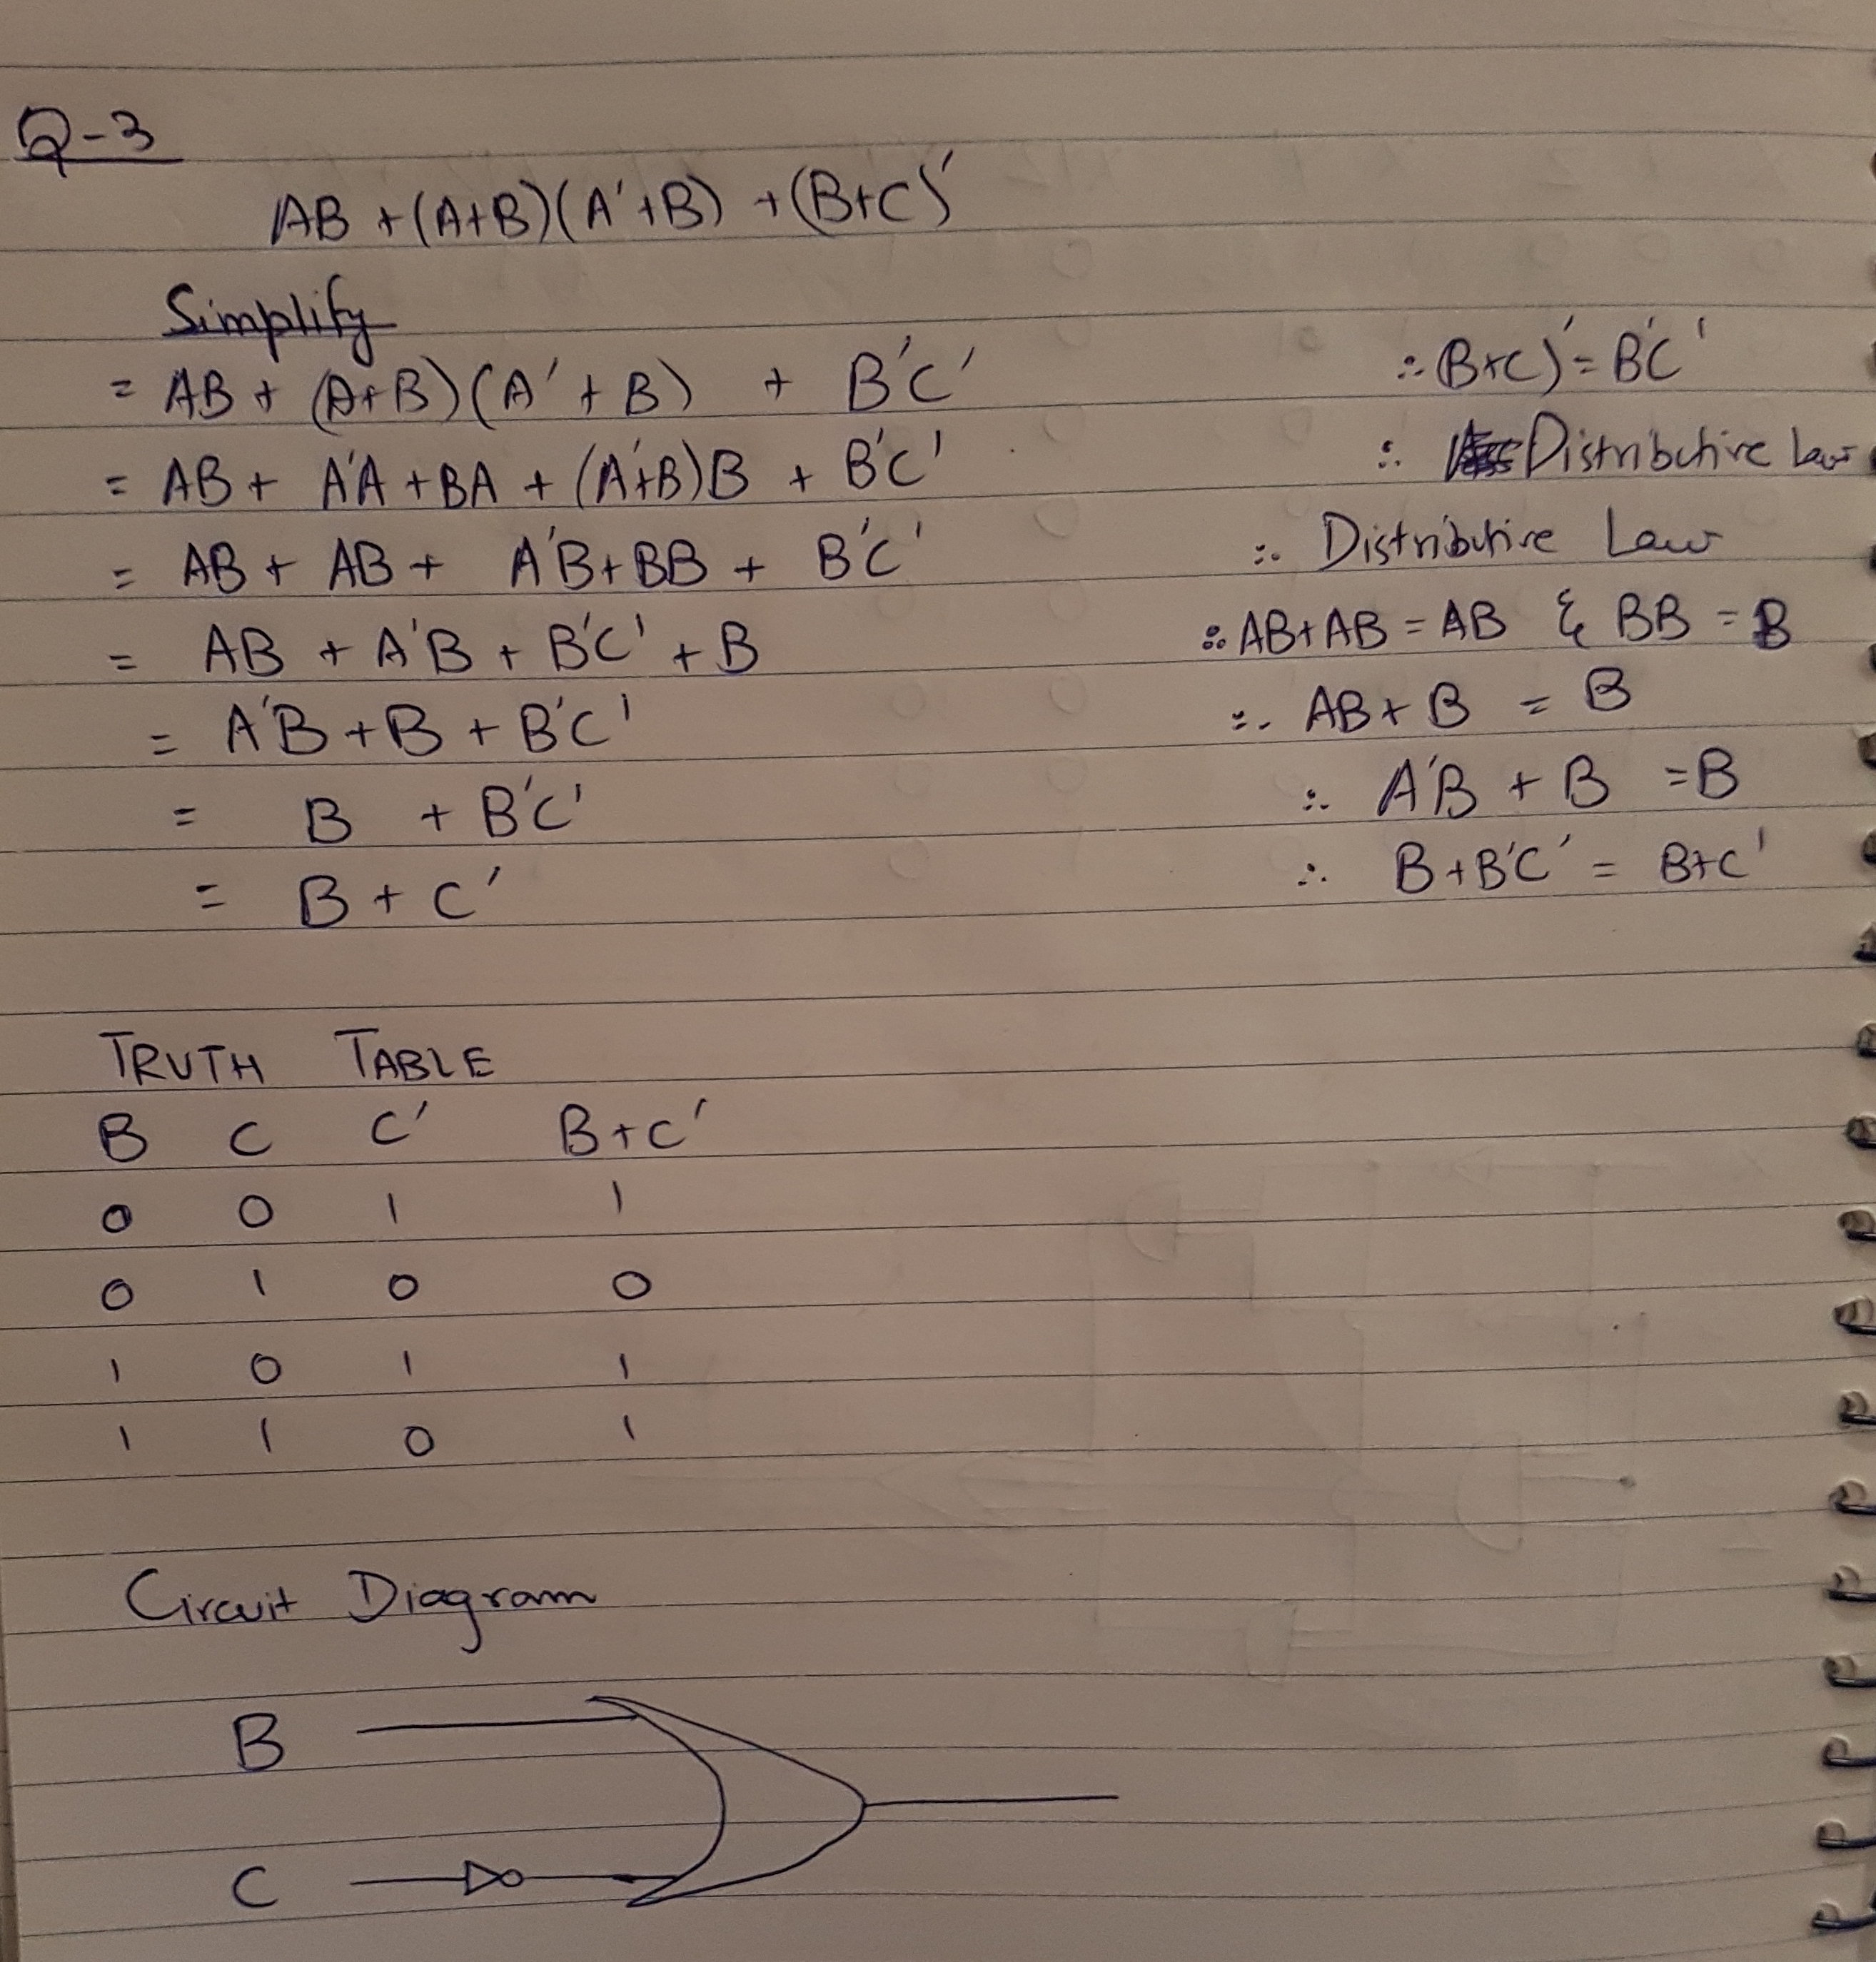 Q-3
AB + (A+B)(A'+B) + (B+C)'
Simplify
= AB + (A+B)(A'+B) + B'C' ∴ (B+C)' = B'C'
= AB + A'A + BA + (A'+B)B + B'C' ∴ Distributive Law
= AB + AB + A'B + BB + B'C' ∴ Distributive Law
= AB + A'B + B'C' + B ∴ AB + AB = AB & BB = B
= A'B + B + B'C' ∴ AB + B = B
= B + B'C' ∴ A'B + B = B
= B + C' ∴ B + B'C' = B+C'
TRUTH TABLE
B C C' B+C'
0 0 1 1
0 1 0 0
1 0 1 1
1 1 0 1
Circuit Diagram
B
C